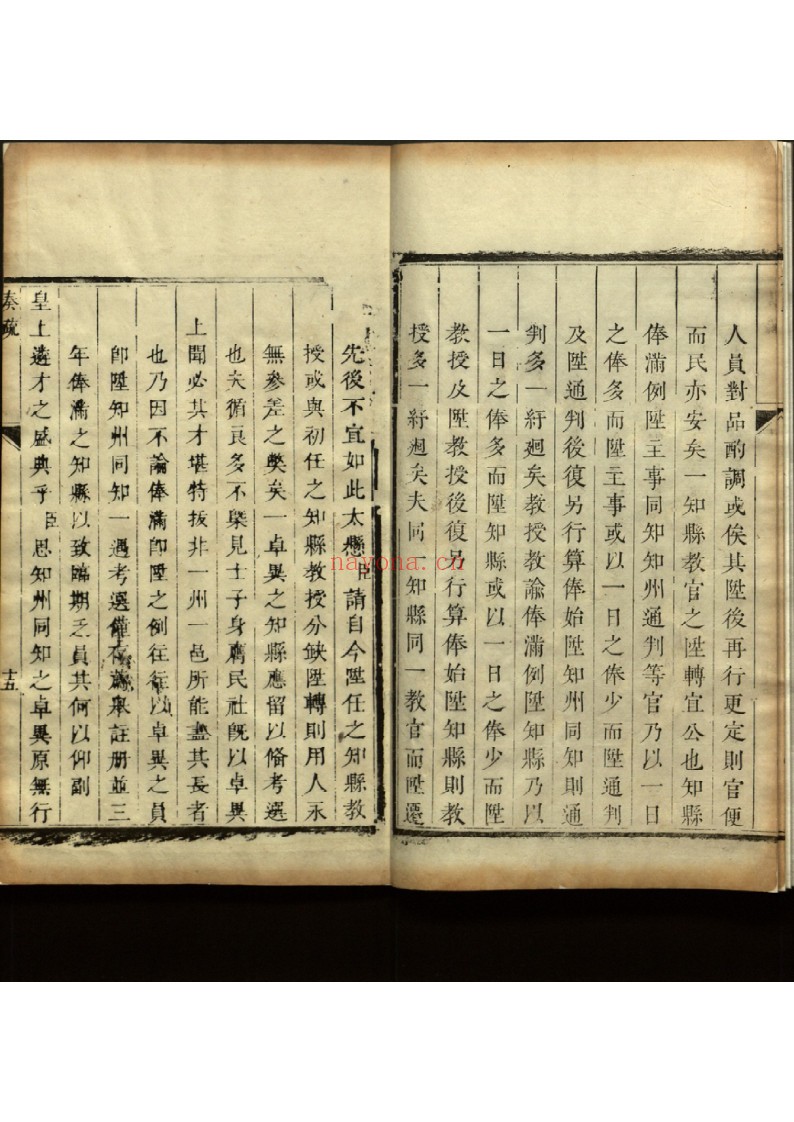 人員對品酌調或俟其陞後再行更定則官便
而民亦安矣一知縣教官之陞轉宜公也知縣
俸滿例陞主事同知知州通判等官乃以一日
之俸多而陞主事或以一日之俸少而陞通判
及陞通判後復另行算俸始陞知州同知則通
判多一紆廻矣教授教諭俸滿例陞知縣乃以
一日之俸多而陞知縣或以一日之俸少而陞
教授及陞教授後復另行算俸始陞知縣則教
授多一紆廻矣夫同一知縣同一教官而陞遷
先後不宜如此太懸臣請自今陞任之知縣教
授或與初任之知縣教授分缺陞轉則用人永
無參差之獘矣一卓異之知縣應留以俻考選
也夫循良多不槩見士子身膺民社旣以卓異
上聞必其才堪特拔非一州一邑所能盡其長者
也乃因不論俸滿卽陞之例往往以卓異之員
卽陞知州同知一遇考選僅存薦舉註册並三
年俸滿之知縣以致臨期乏員其何以仰副
皇上遴才之盛典乎臣思知州同知之卓異原無行
奏疏
十五
nayona.cn